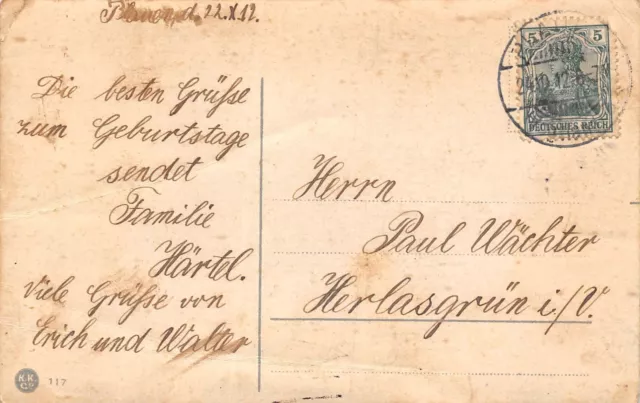 Plauen, d. 22.X.12.
Die besten Grüsse
zum Geburtstage
sendet
Familie
Härtel.
Viele Grüsse von
Erich und Walter
Herrn
Paul Wächter
Herlasgrün i./V.
5 5
DEUTSCHES REICH
K.K.
Co
117